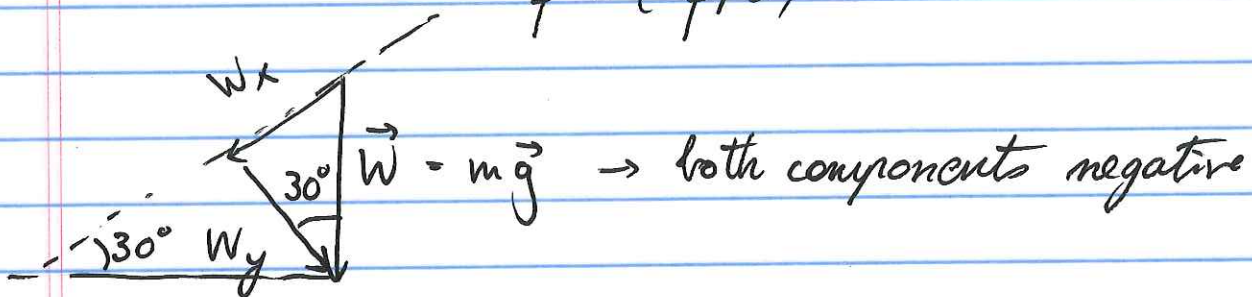 Wx
30° W⃗ = mg⃗ → both components negative
30° Wy